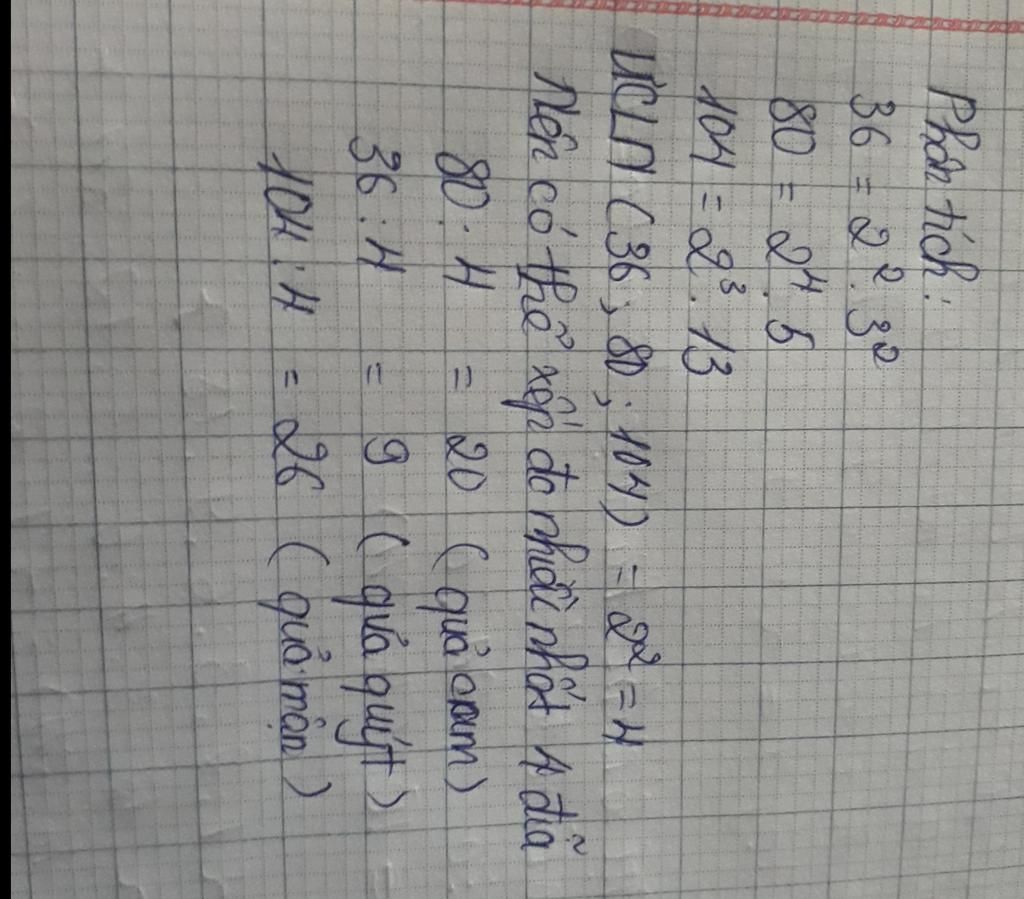 Phân tích:
36 = 2².3²
80 = 2⁴.5
104 = 2³.13
ƯCLN (36; 80; 104) = 2² = 4
Nên có thể xếp đc nhiều nhất 4 đĩa
80 : 4 = 20 (quả cam)
36 : 4 = 9 (quả quýt)
104 : 4 = 26 (quả mận)